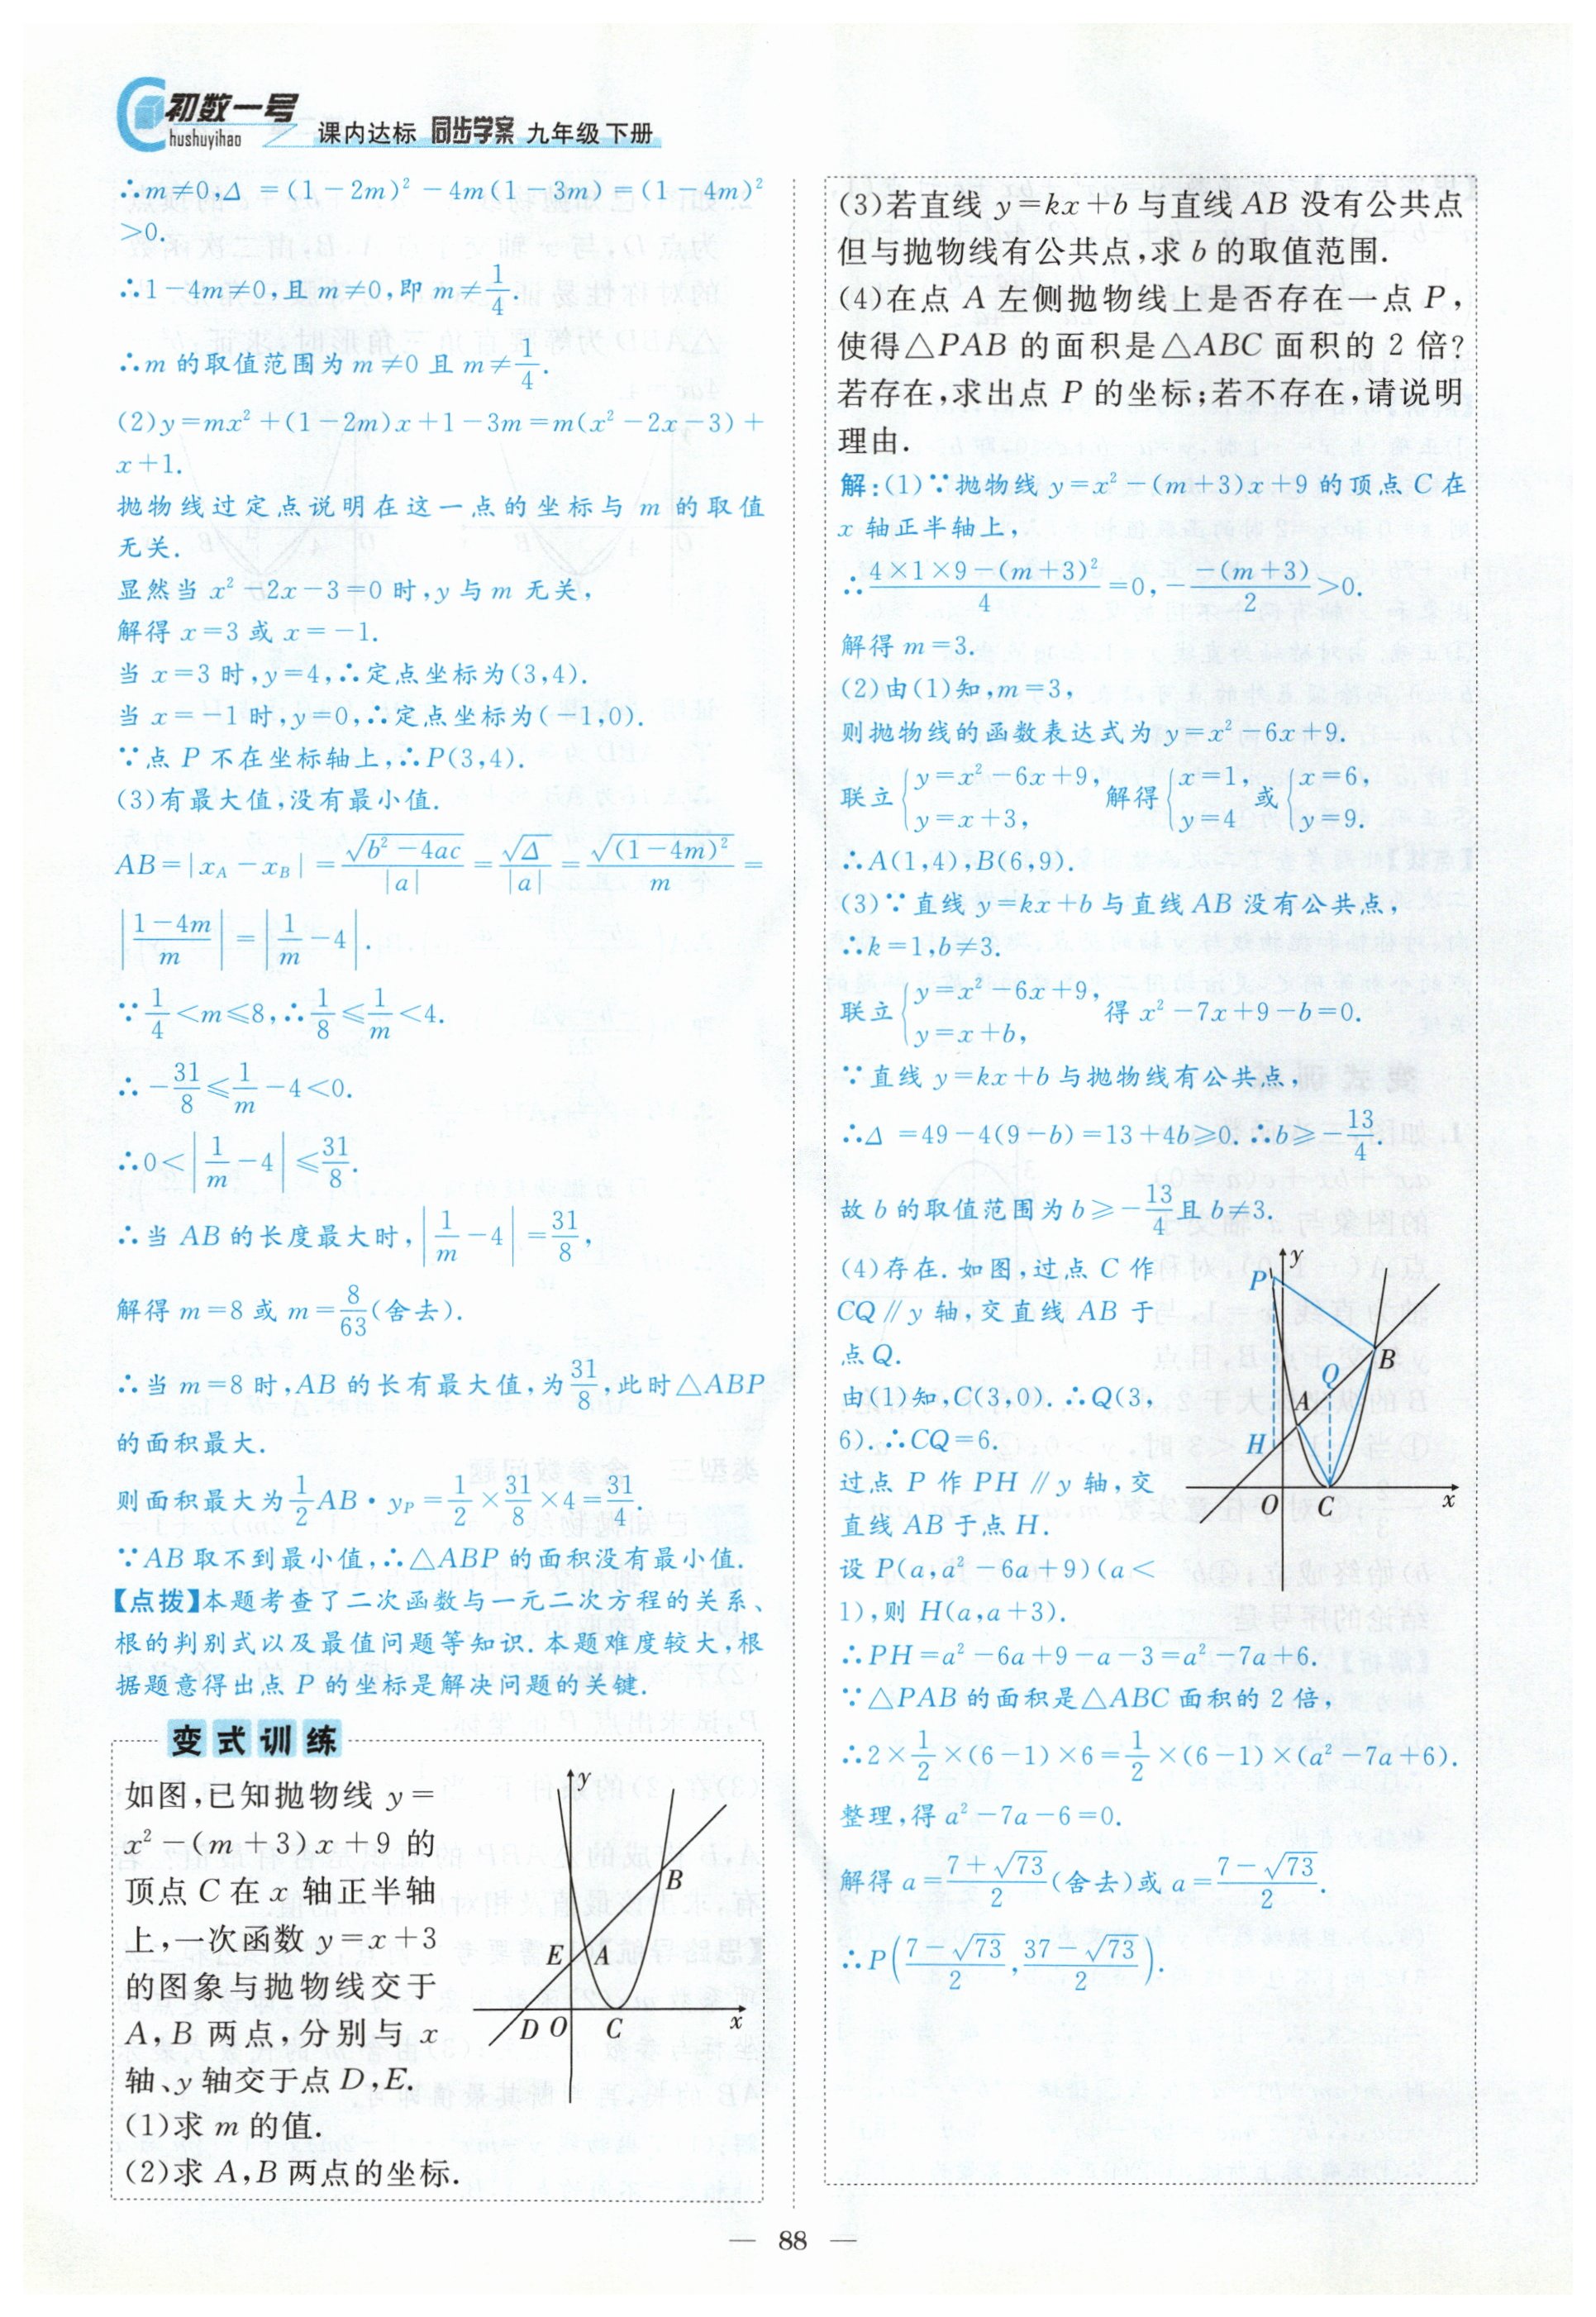 初数一号
hushuyihao
课内达标 同步学案 九年级 下册
∴m≠0,Δ =(1-2m)²-4m(1-3m)=(1-4m)²
>0.
∴1-4m≠0,且 m≠0,即 m≠1/4.
∴m 的取值范围为 m≠0 且 m≠1/4.
(2)y=mx²+(1-2m)x+1-3m=m(x²-2x-3)+
x+1.
抛物线过定点说明在这一点的坐标与 m 的取值
无关.
显然当 x²-2x-3=0 时,y 与 m 无关,
解得 x=3 或 x=-1.
当 x=3 时,y=4,∴定点坐标为(3,4).
当 x=-1 时,y=0,∴定点坐标为(-1,0).
∵点 P 不在坐标轴上,∴P(3,4).
(3)有最大值,没有最小值.
AB=|x_A-x_B|=√(b²-4ac)/|a|=√Δ/|a|=√((1-4m)²)/m=
|(1-4m)/m|=|1/m-4|.
∵1/4<m≤8,∴1/8≤1/m<4.
∴-31/8≤1/m-4<0.
∴0<|1/m-4|≤31/8.
∴当 AB 的长度最大时,|1/m-4|=31/8,
解得 m=8 或 m=8/63(舍去).
∴当 m=8 时,AB 的长有最大值,为31/8,此时△ABP
的面积最大.
则面积最大为1/2AB·y_P=1/2×31/8×4=31/4.
∵AB 取不到最小值,∴△ABP 的面积没有最小值.
【点拨】本题考查了二次函数与一元二次方程的关系、
根的判别式以及最值问题等知识.本题难度较大,根
据题意得出点 P 的坐标是解决问题的关键.
变式训练
如图,已知抛物线 y=
x²-(m+3)x+9 的
顶点 C 在 x 轴正半轴
上,一次函数 y=x+3
的图象与抛物线交于
A,B 两点,分别与 x
轴、y 轴交于点 D,E.
(1)求 m 的值.
(2)求 A,B 两点的坐标.
y
B
E
A
D
O
C
x
(3)若直线 y=kx+b 与直线 AB 没有公共点
但与抛物线有公共点,求 b 的取值范围.
(4)在点 A 左侧抛物线上是否存在一点 P,
使得△PAB 的面积是△ABC 面积的 2 倍?
若存在,求出点 P 的坐标;若不存在,请说明
理由.
解:(1)∵抛物线 y=x²-(m+3)x+9 的顶点 C 在
x 轴正半轴上,
∴(4×1×9-(m+3)²)/4=0,-(-(m+3))/2>0.
解得 m=3.
(2)由(1)知,m=3,
则抛物线的函数表达式为 y=x²-6x+9.
联立{y=x²-6x+9, y=x+3, 解得{x=1, y=4 或{x=6, y=9.
∴A(1,4),B(6,9).
(3)∵直线 y=kx+b 与直线 AB 没有公共点,
∴k=1,b≠3.
联立{y=x²-6x+9, y=x+b, 得 x²-7x+9-b=0.
∵直线 y=kx+b 与抛物线有公共点,
∴Δ =49-4(9-b)=13+4b≥0.∴b≥-13/4.
故 b 的取值范围为 b≥-13/4且 b≠3.
(4)存在.如图,过点 C 作
CQ∥y 轴,交直线 AB 于
点 Q.
由(1)知,C(3,0).∴Q(3,
6).∴CQ=6.
过点 P 作 PH∥y 轴,交
直线 AB 于点 H.
设 P(a,a²-6a+9)(a<
1),则 H(a,a+3).
y
P
B
Q
A
H
O
C
x
∴PH=a²-6a+9-a-3=a²-7a+6.
∵△PAB 的面积是△ABC 面积的 2 倍,
∴2×1/2×(6-1)×6=1/2×(6-1)×(a²-7a+6).
整理,得 a²-7a-6=0.
解得 a=(7+√73)/2(舍去)或 a=(7-√73)/2.
∴P((7-√73)/2,(37-√73)/2).
— 88 —